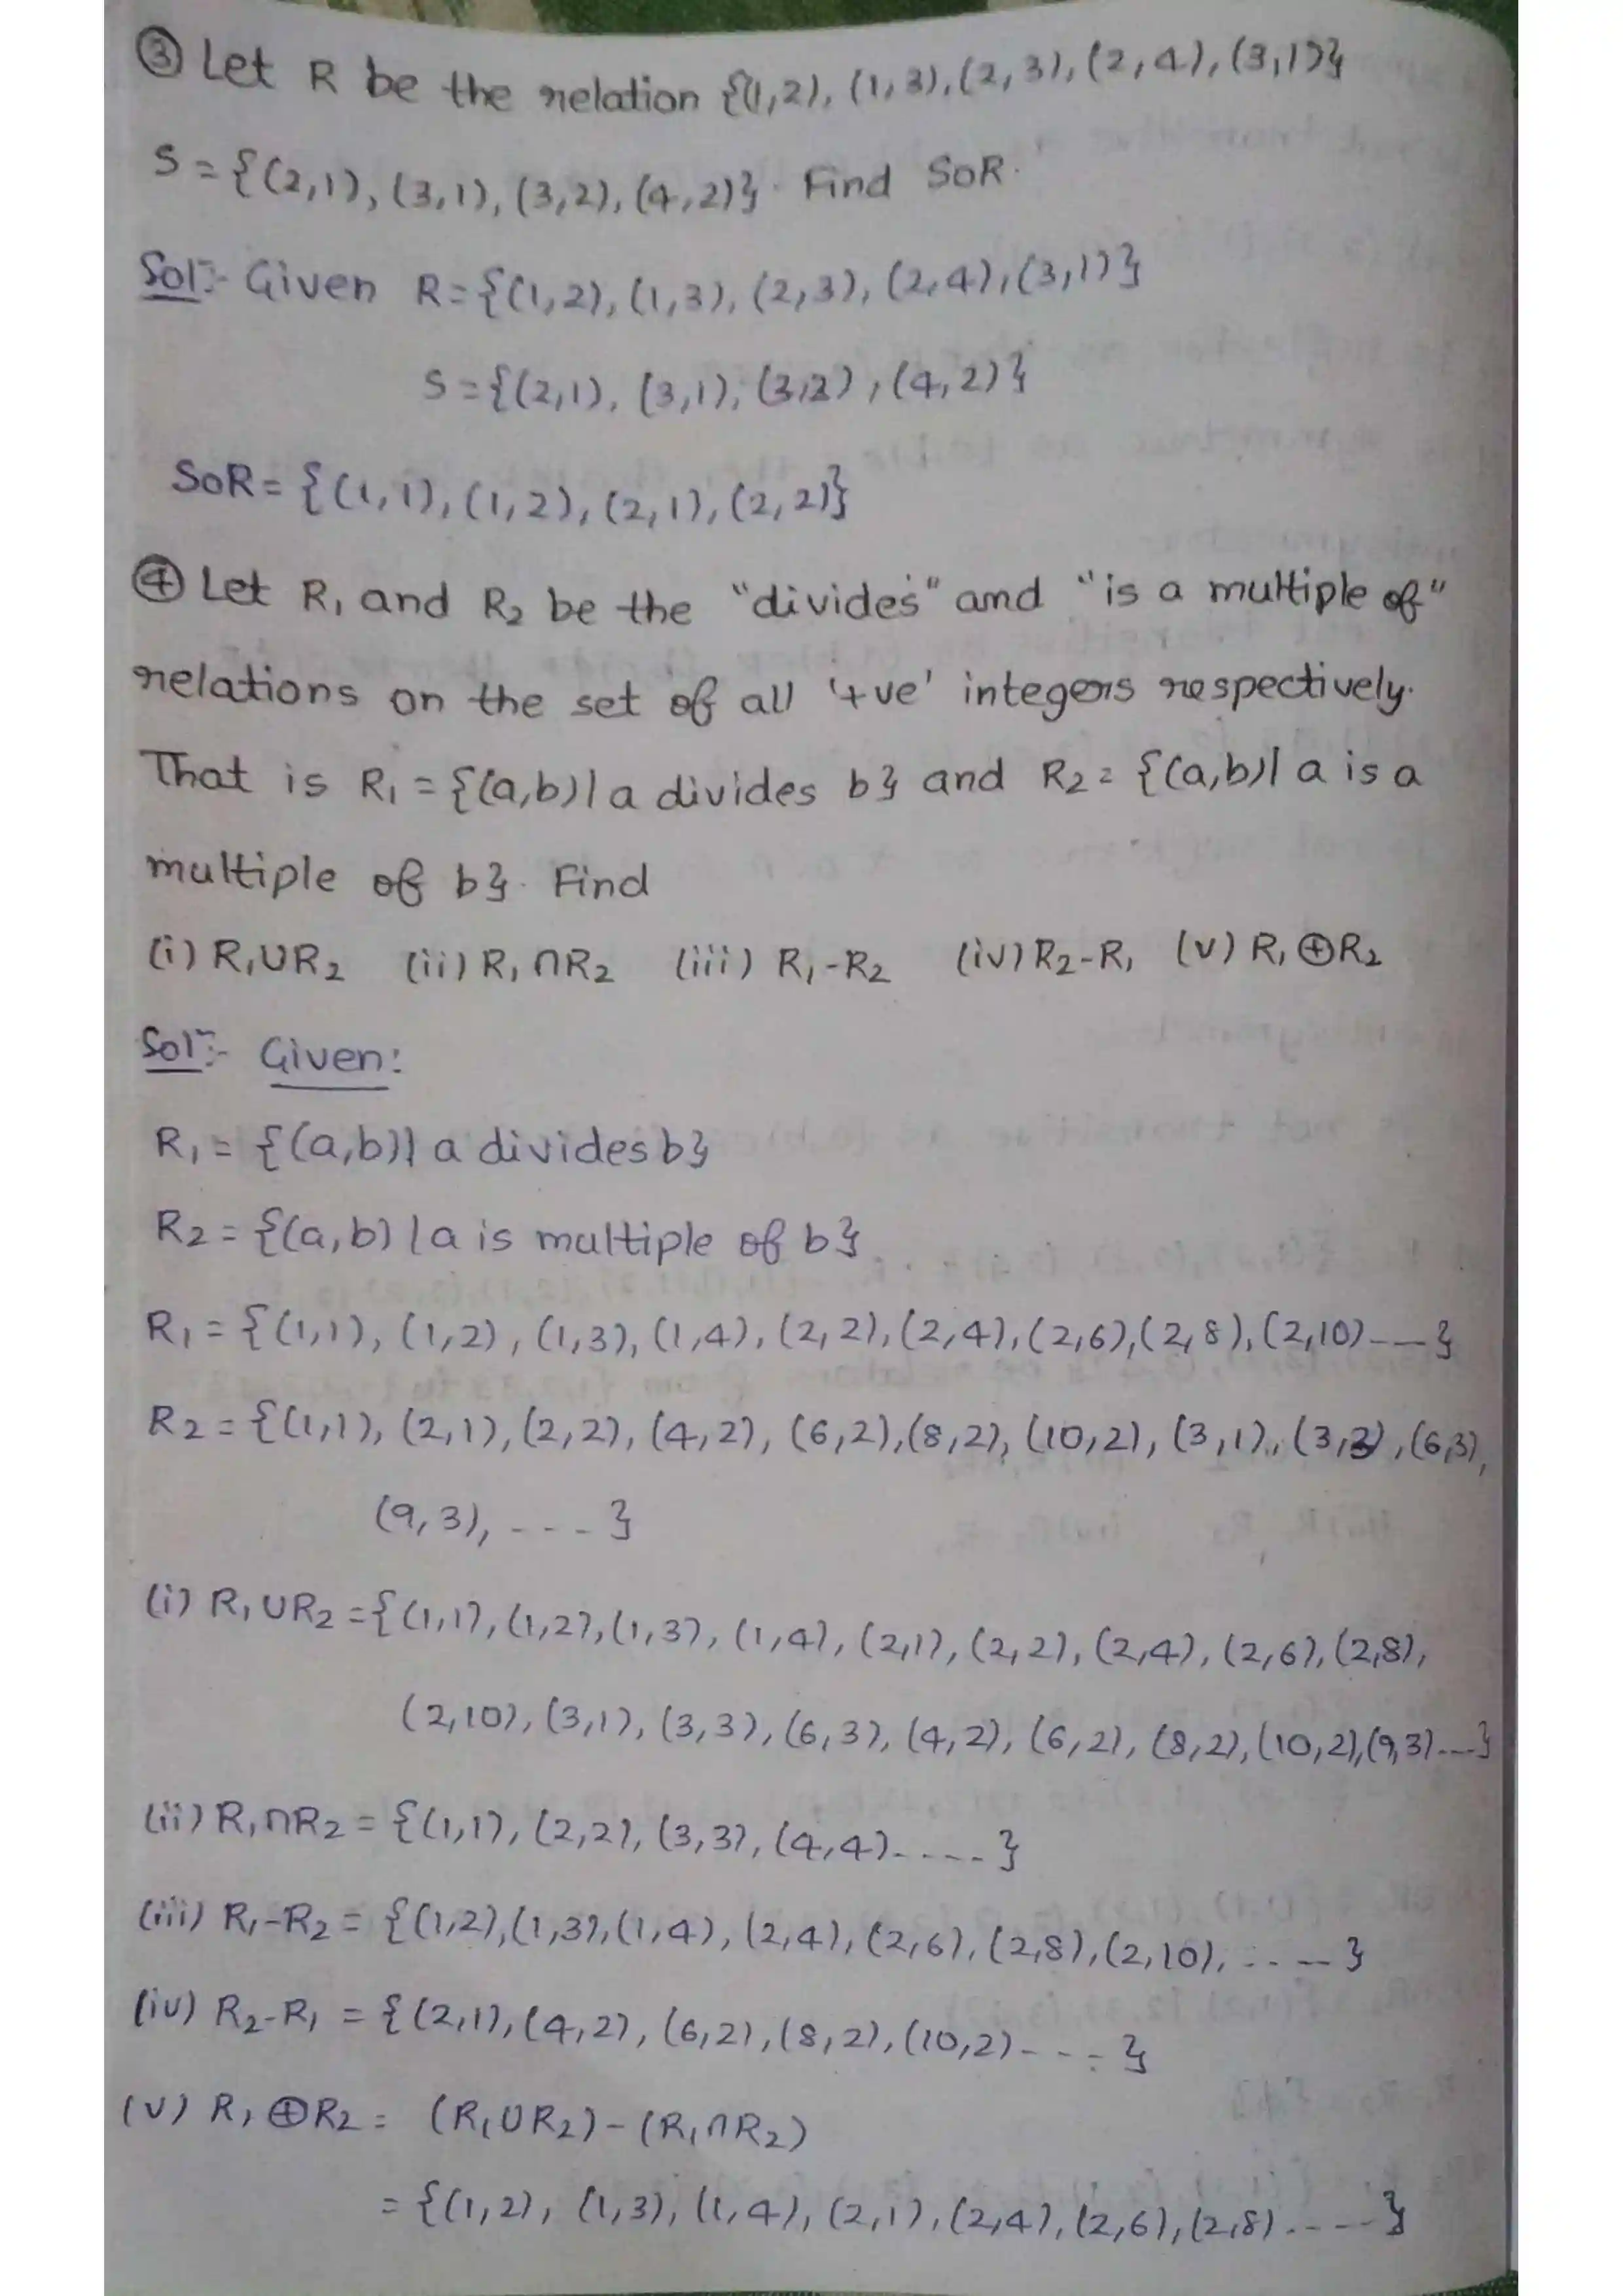 ③ Let R be the relation {(1,2), (1,3), (2,3), (2,4), (3,1)}
S = {(2,1), (3,1), (3,2), (4,2)}. Find SoR.
Sol:- Given R = {(1,2), (1,3), (2,3), (2,4), (3,1)}
S = {(2,1), (3,1), (3,2), (4,2)}
SoR = {(1,1), (1,2), (2,1), (2,2)}
④ Let R₁ and R₂ be the "divides" and "is a multiple of"
relations on the set of all '+ve' integers respectively.
That is R₁ = {(a,b)| a divides b} and R₂ = {(a,b)| a is a
multiple of b}. Find
(i) R₁∪R₂ (ii) R₁∩R₂ (iii) R₁-R₂ (iv) R₂-R₁ (v) R₁⊕R₂
Sol:- Given:
R₁ = {(a,b)| a divides b}
R₂ = {(a,b) | a is multiple of b}
R₁ = {(1,1), (1,2), (1,3), (1,4), (2,2), (2,4), (2,6), (2,8), (2,10)---}
R₂ = {(1,1), (2,1), (2,2), (4,2), (6,2), (8,2), (10,2), (3,1), (3,3), (6,3),
(9,3), ---- }
(i) R₁∪R₂ = {(1,1), (1,2), (1,3), (1,4), (2,1), (2,2), (2,4), (2,6), (2,8),
(2,10), (3,1), (3,3), (6,3), (4,2), (6,2), (8,2), (10,2), (9,3)----}
(ii) R₁∩R₂ = {(1,1), (2,2), (3,3), (4,4)----- }
(iii) R₁-R₂ = {(1,2), (1,3), (1,4), (2,4), (2,6), (2,8), (2,10), ---- }
(iv) R₂-R₁ = {(2,1), (4,2), (6,2), (8,2), (10,2)---- }
(v) R₁⊕R₂ = (R₁∪R₂)-(R₁∩R₂)
= {(1,2), (1,3), (1,4), (2,1), (2,4), (2,6), (2,8)-----}